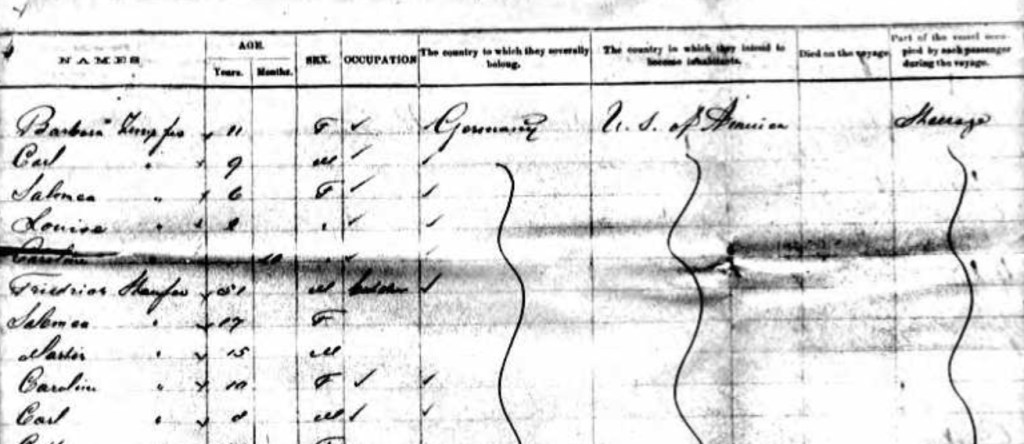 NAMES AGE. Years. Months. SEX. OCCUPATION The country to which they severally belong. The country in which they intend to become inhabitants. Died on the voyage. Part of the vessel occupied by each passenger during the voyage.
Barbara 11 F Germany U. S. of America Steerage
Carl " 9 M
Salomea " 6 F
Louise " 2 "
Carolin " 10 "
Friedrich 51 M
Salomea " 17 F
Martin " 15 M
Carolin " 10 F
Carl " 8 M